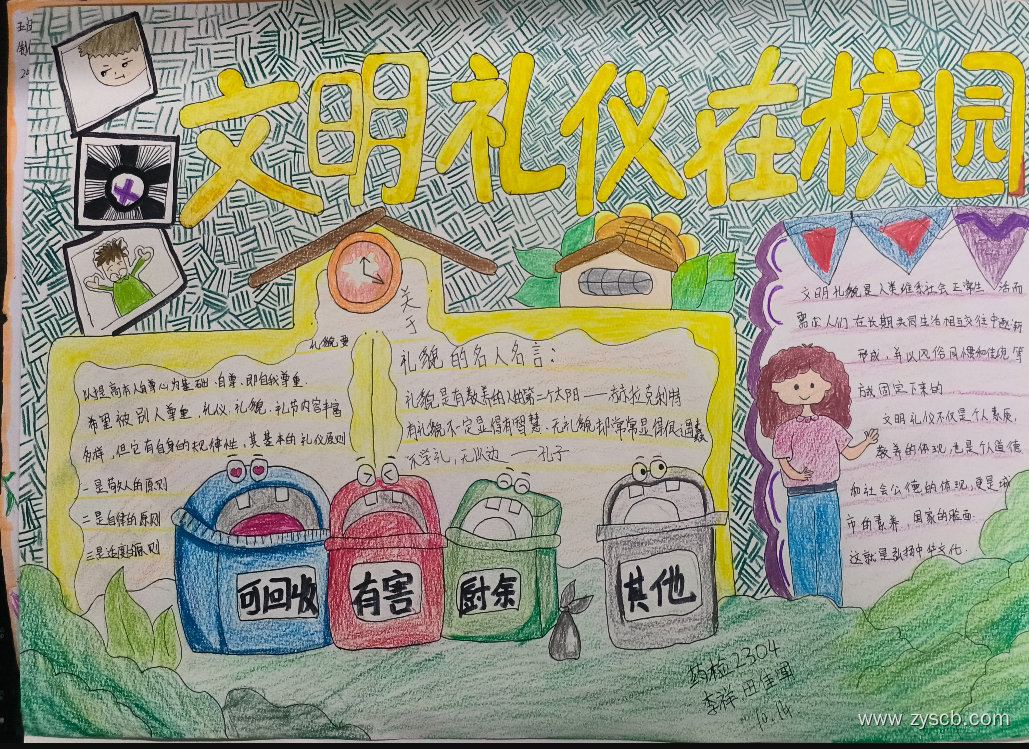 文明礼仪在校园
关于
礼貌要
以提高本人自尊心为基础.自尊.即自我尊重.
希望被别人尊重.礼仪.礼貌.礼节内容丰富
多样,但它有自身的规律性,其基本的礼仪原则
一是敬人的原则
二是自律的原则
三是适度的原则
礼貌的名人名言:
礼貌是有教养的人的第二个太阳——赫拉克利特
有礼貌不一定显得有智慧.无礼貌却常常显得很愚蠢
不学礼,无以立——孔子
文明礼貌是人类维系社会正常生活而
需求人们在长期共同生活相互交往中逐渐
形成,并以风俗习惯和传统等
放固定下来的
文明礼仪不仅是个人素质,
教养的体现,也是个人道德
和社会公德的体现,更是城
市的素养,国家的脸面
这就是弘扬中华文化.
可回收
有害
厨余
其他
药检2304
10.14
www.zyscb.com